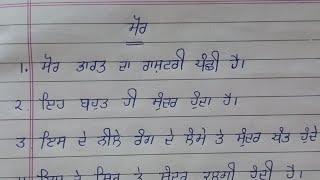 ਮੋਰ
1. ਮੋਰ ਭਾਰਤ ਦਾ ਰਾਸ਼ਟਰੀ ਪੰਛੀ ਹੈ।
੨ ਇਹ ਬਹੁਤ ਹੀ ਸੁੰਦਰ ਹੁੰਦਾ ਹੈ।
੩ ਇਸ ਦੇ ਨੀਲੇ ਰੰਗ ਦੇ ਲੰਮੇ ਤੇ ਸੁੰਦਰ ਖੰਭ ਹੁੰਦੇ
ਇਸ ਦੇ ਸਿਰ ਤੇ ਸੁੰਦਰ ਕਲਗੀ ਹੁੰਦੀ ਹੈ।